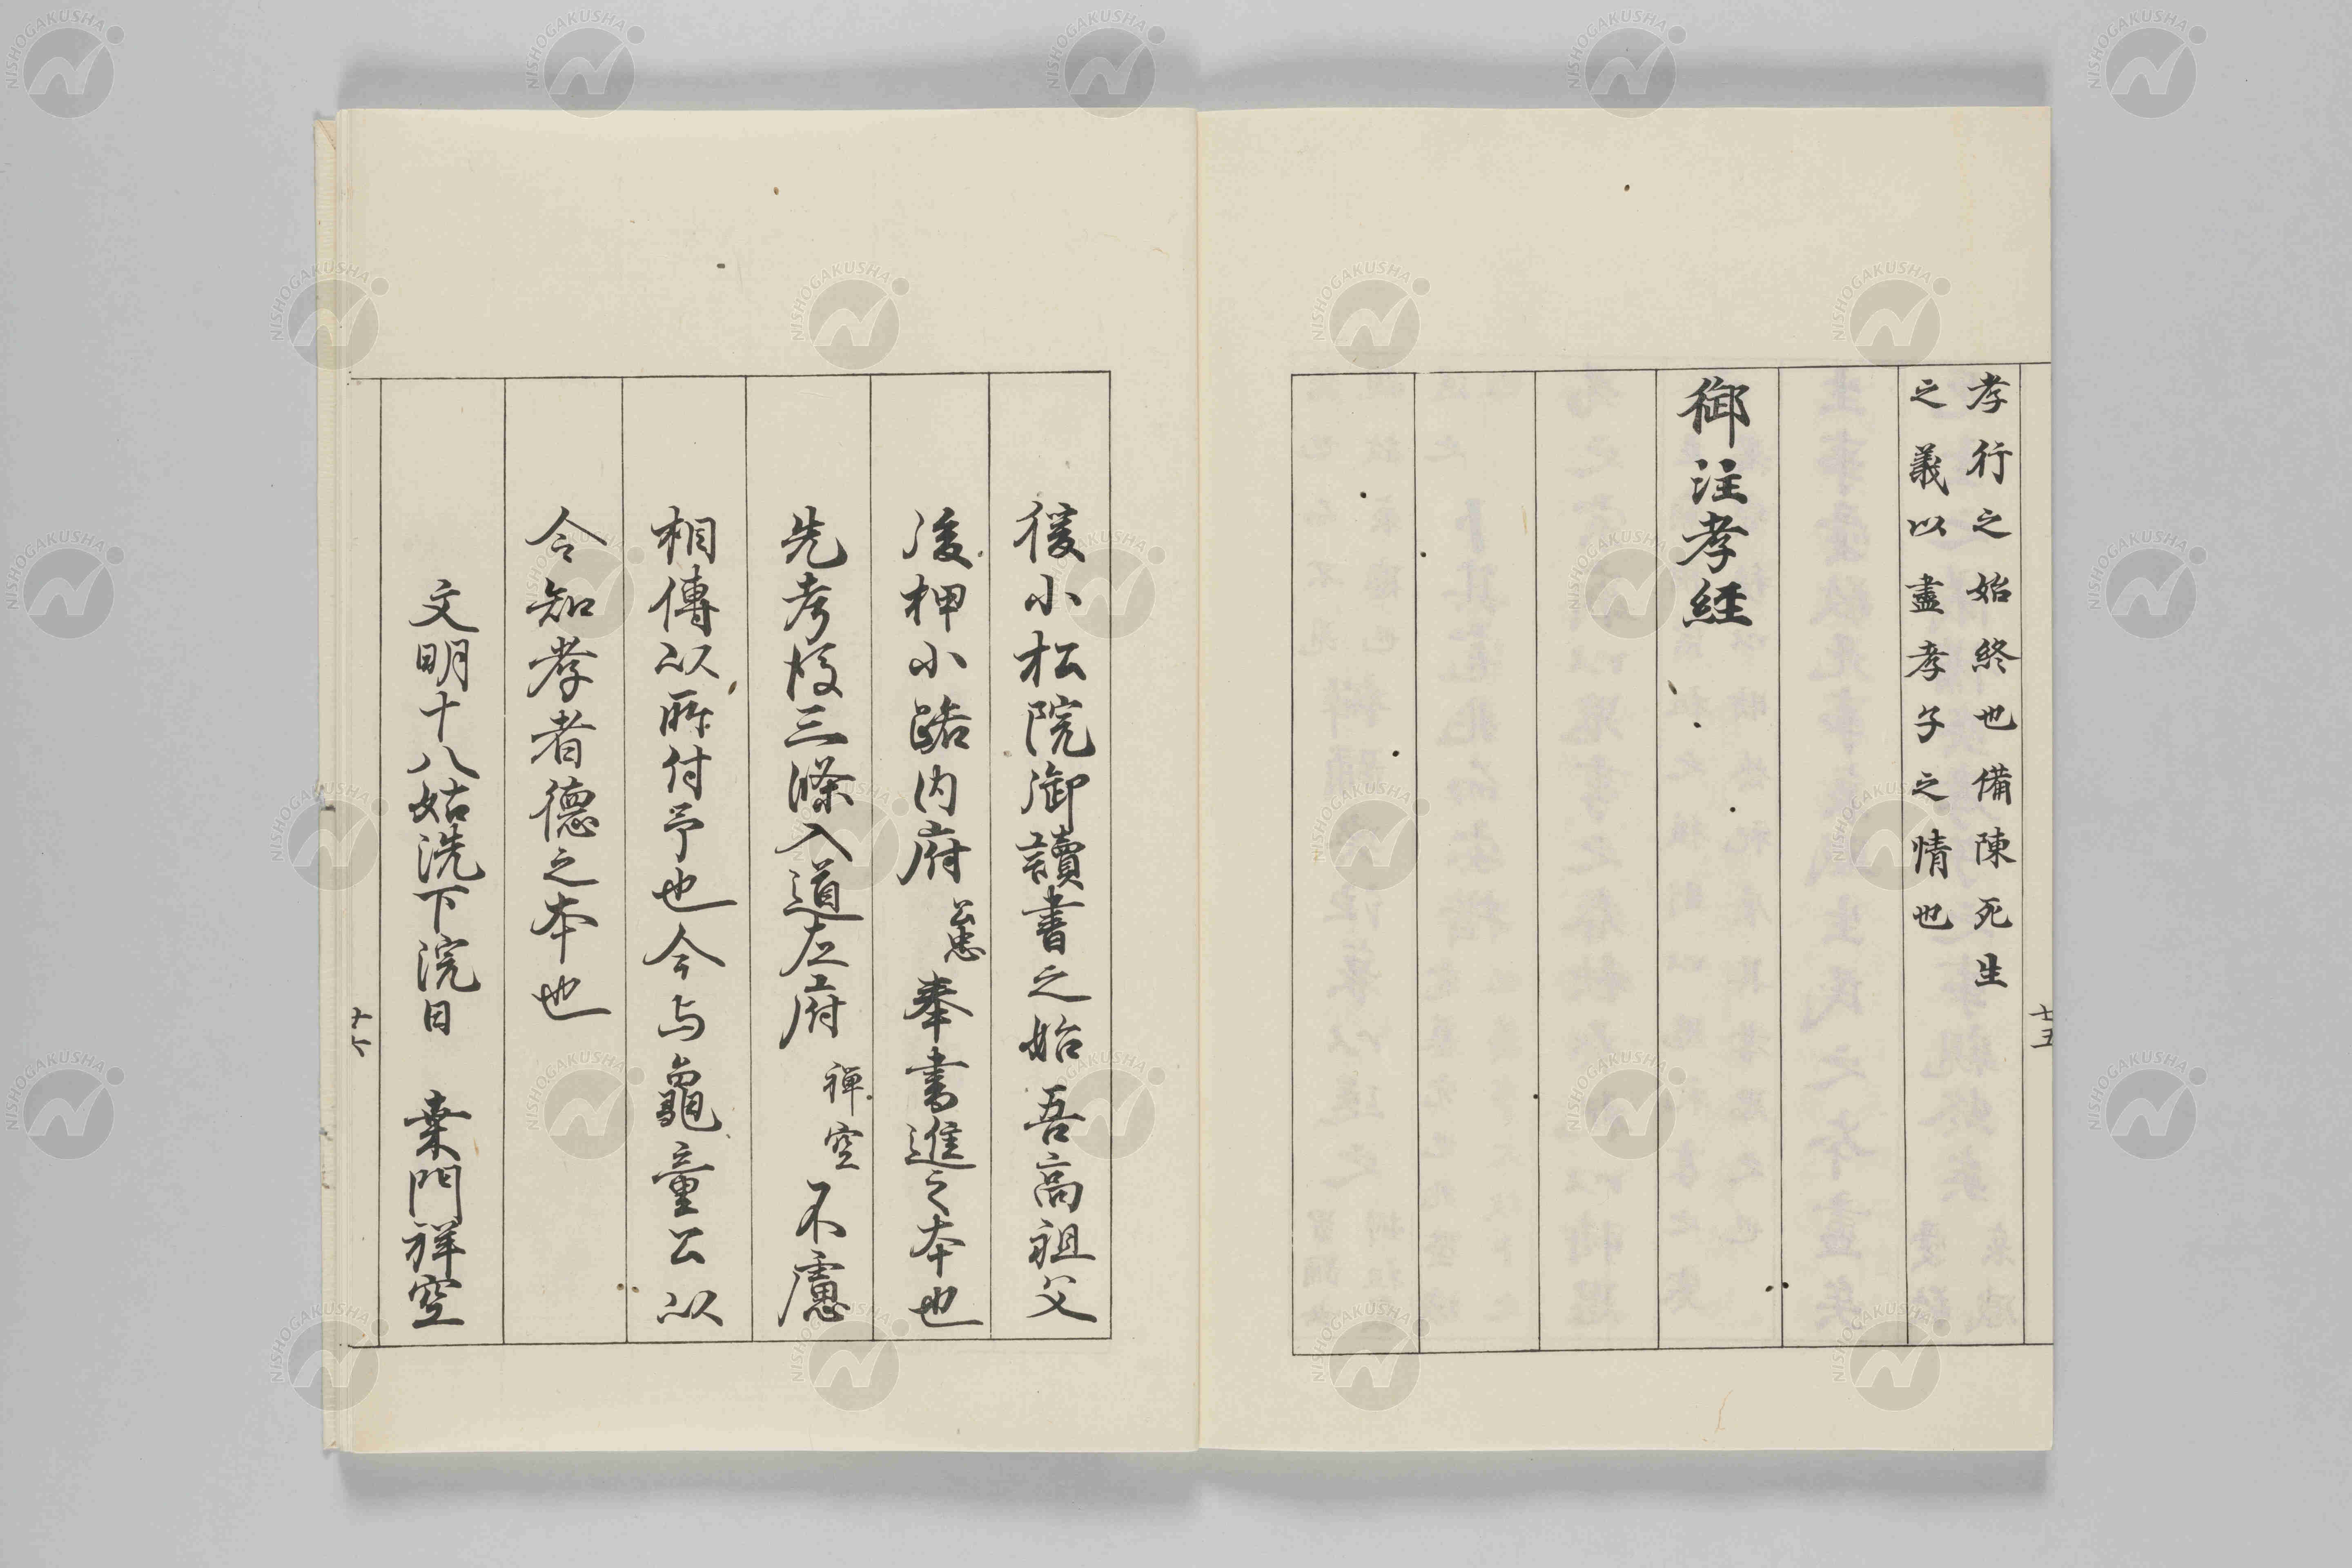 孝行之始終也備陳死生
之義以盡孝子之情也
御注孝経
十五
後小松院御讀書之始吾高祖父
後押小路内府公忠奉書進之本也
先考後三條入道左府禅空不慮
相傳以所付予也今与龜童公以
令知孝者德之本也
文明十八姑洗下浣日 桒門祥空
NISHOGAKUSHA